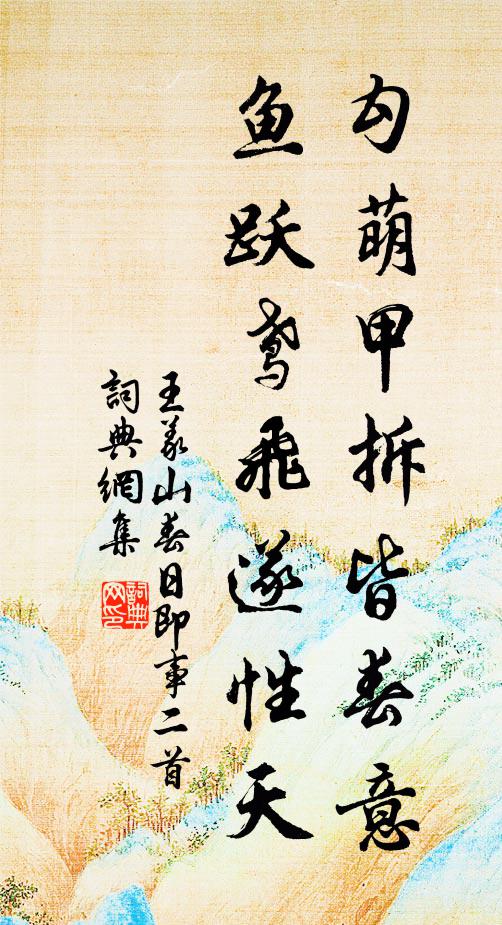 勾萌甲拆皆春意
鱼跃鸢飞遂性天
王義山春日即事二首
詞典網集
詞典网印